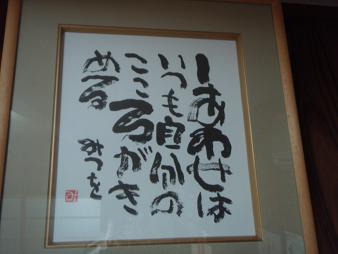 しあわせは
いつも自分の
こころがき
める みつを